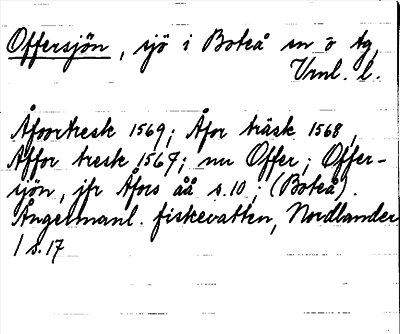 Offersjön, sjö i Boteå sn o tg
Vrnl. l.
Åforrtresk 1569; Åfor träsk 1568,
Affor tresk 1567; nu Offer; Offer-
sjön, jfr Åfors åå s.10; (Boteå).
Ångermanl. fiskevatten, Nordlander
1 s.17